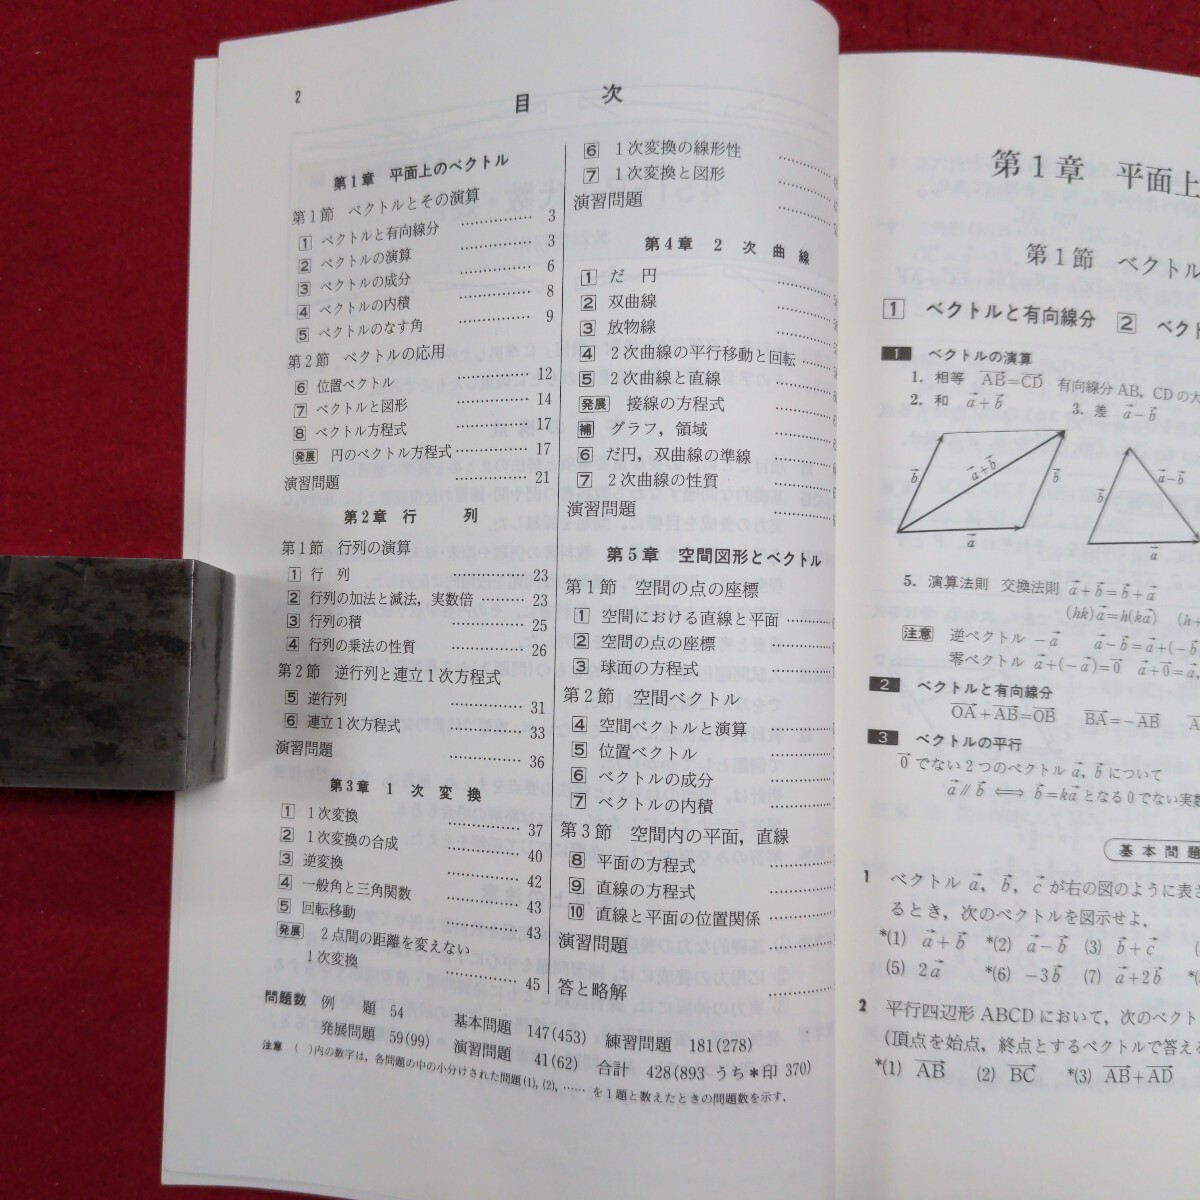 2
目次
第1章 平面上のベクトル
第1節 ベクトルとその演算
1 ベクトルと有向線分 …………… 3
2 ベクトルの演算 …………… 3
3 ベクトルの成分 …………… 6
4 ベクトルの内積 …………… 8
5 ベクトルのなす角 …………… 9
第2節 ベクトルの応用
6 位置ベクトル …………… 12
7 ベクトルと図形 …………… 14
8 ベクトル方程式 …………… 17
発展 円のベクトル方程式 …………… 17
演習問題 …………… 21
第2章 行列
第1節 行列の演算
1 行列 …………… 23
2 行列の加法と減法，実数倍 ……… 23
3 行列の積 …………… 25
4 行列の乗法の性質 …………… 26
第2節 逆行列と連立1次方程式
5 逆行列 …………… 31
6 連立1次方程式 …………… 33
演習問題 …………… 36
第3章 1次変換
1 1次変換 …………… 37
2 1次変換の合成 …………… 40
3 逆変換 …………… 42
4 一般角と三角関数 …………… 43
5 回転移動 …………… 43
発展 2点間の距離を変えない
1次変換 …………… 45
6 1次変換の線形性 ……………
7 1次変換と図形 ……………
演習問題 ……………
第4章 2次曲線
1 だ円 ……………
2 双曲線 ……………
3 放物線 ……………
4 2次曲線の平行移動と回転 ……
5 2次曲線と直線 ……………
発展 接線の方程式 ……………
補 グラフ，領域 ……………
6 だ円，双曲線の準線 ……………
7 2次曲線の性質 ……………
演習問題 ……………
第5章 空間図形とベクトル
第1節 空間の点の座標
1 空間における直線と平面 ………
2 空間の点の座標 ……………
3 球面の方程式 ……………
第2節 空間ベクトル
4 空間ベクトルと演算 ……………
5 位置ベクトル ……………
6 ベクトルの成分 ……………
7 ベクトルの内積 ……………
第3節 空間内の平面，直線
8 平面の方程式 ……………
9 直線の方程式 ……………
10 直線と平面の位置関係 …………
演習問題 ……………
答と略解 ……………
問題数 例題 54 基本問題 147(453) 練習問題 181(278)
発展問題 59(99) 演習問題 41(62) 合計 428(893 うち*印 370)
注意 ( )内の数字は，各問題の中の小分けされた問題(1), (2), …… を1題と数えたときの問題数を示す．
第1章 平面上
第1節 ベクトル
1 ベクトルと有向線分 2 ベクト
1 ベクトルの演算
1. 相等 AB⃗=CD⃗ 有向線分AB, CDの大
2. 和 a⃗+b⃗ 3. 差 a⃗−b⃗
b⃗ a⃗+b⃗ b⃗ a⃗
b⃗ a⃗−b⃗ a⃗
5. 演算法則 交換法則 a⃗+b⃗=b⃗+a⃗
(hk)a⃗=h(ka⃗) (h+
注意 逆ベクトル −a⃗ a⃗−b⃗=a⃗+(−b⃗
零ベクトル a⃗+(−a⃗)=0⃗ a⃗+0⃗=a⃗,
2 ベクトルと有向線分
OA⃗+AB⃗=OB⃗ BA⃗=−AB⃗ A
3 ベクトルの平行
0⃗でない2つのベクトルa⃗, b⃗について
a⃗∥b⃗ ⟺ b⃗=ka⃗となる0でない実数
基本問題
1 ベクトルa⃗, b⃗, c⃗が右の図のように表さ
るとき，次のベクトルを図示せよ．
*(1) a⃗+b⃗ *(2) a⃗−b⃗ (3) b⃗+c⃗ (
(5) 2a⃗ *(6) −3b⃗ (7) a⃗+2b⃗ *(
2 平行四辺形ABCDにおいて，次のベクト
(頂点を始点，終点とするベクトルで答える
*(1) AB⃗ (2) BC⃗ *(3) AB⃗+AD⃗